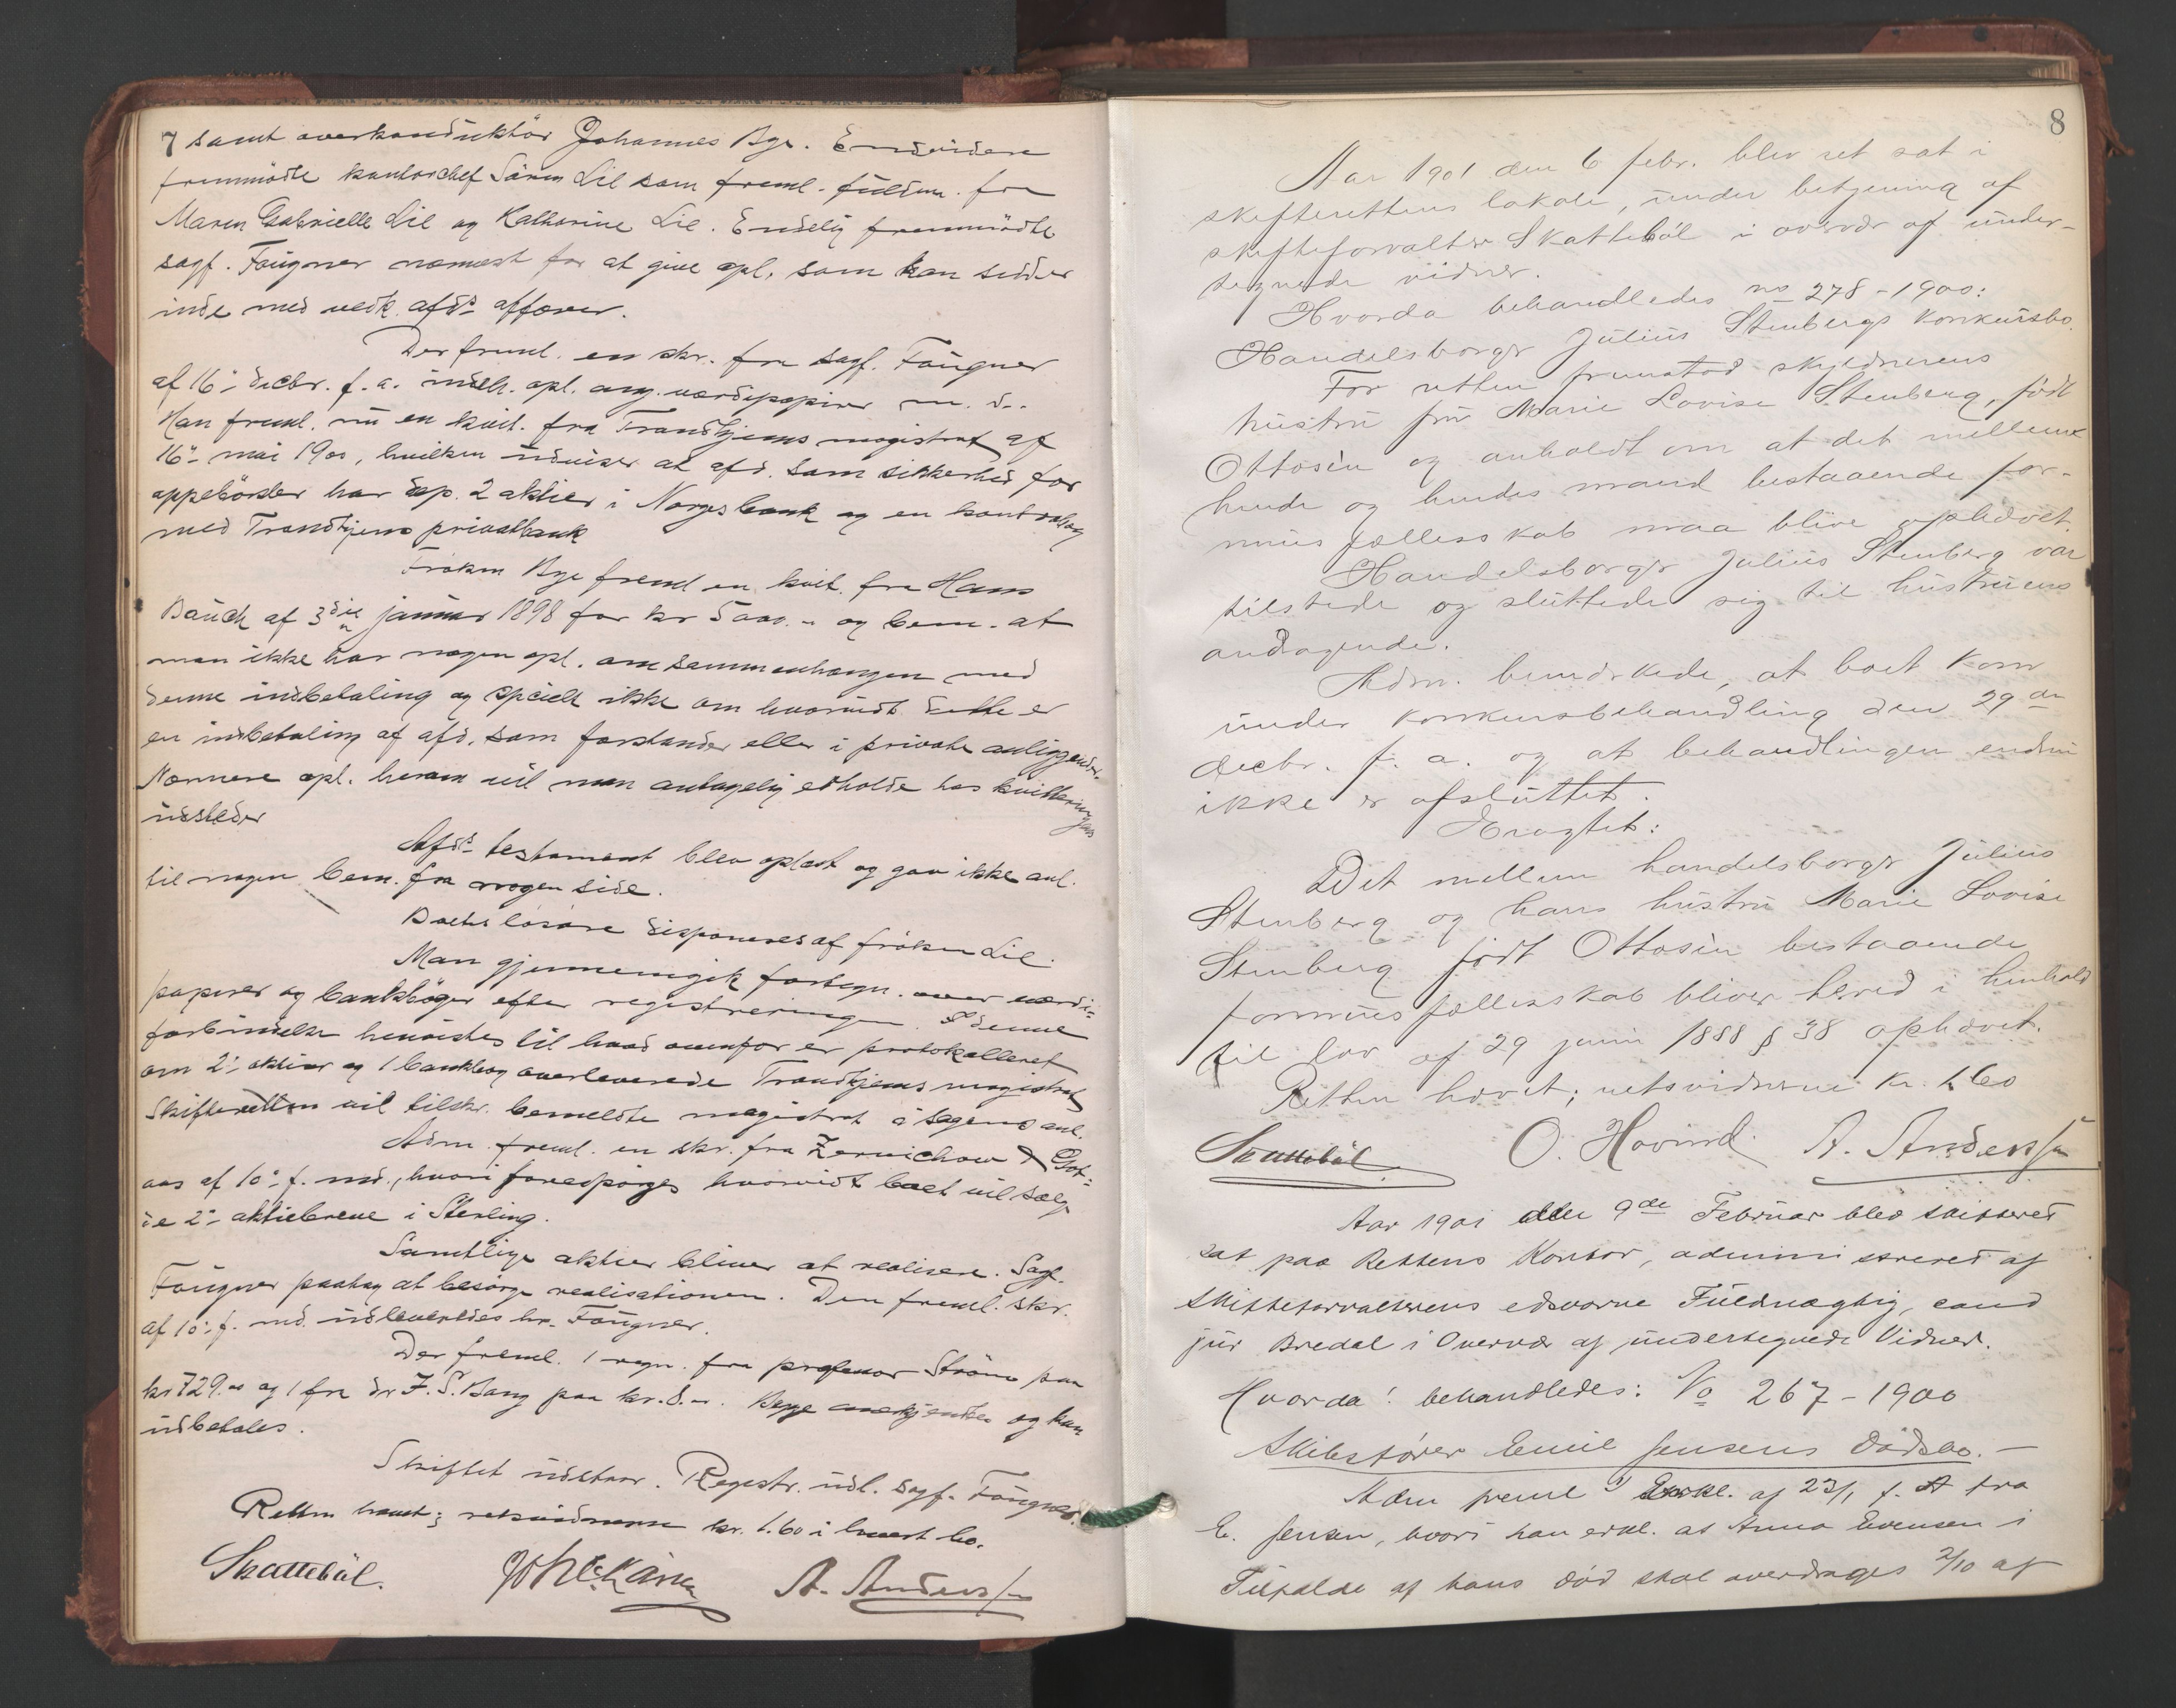 7 samt overkonduktör Johannes Bye. Endvidere
fremmödte kontorchef Sören Lie som freml. fuldm. fra
Maren Gabrielle Lie og Katharine Lie. Endelig fremmödte
sagf. Fougner nærmest for at give opl. som han sidder
inde med vedk. afd⸗s affærer.
Der freml. en skr. fra sagf. Fougner
af 16⸗ decbr. f. a. indeh. opl. ang. værdipapirer m. v.
Han freml. nu en kvit. fra Trondhjems magistrat af
16⸗ mai 1900, hvilken udviser at afd. som sikkerhed for
oppebörsler har dep. 2 aktier i Norges bank og en kontrabog
med Trondhjems privatbank
Fröken Bye freml en kvit. fra Hans
Bauck af 3die januar 1898 for kr 5000.- og bem. at
man ikke har nogen opl. om sammenhængen med
denne indbetaling og specielt ikke om hvorvidt dette er
en indbetaling af afd. som forstander eller i private anliggender.
Nærmere opl. herom vil man antagelig erholde hos kvitteringens
udsteder
Afd⸗s testament blev oplæst og gav ikke anl.
til nogen bem. fra nogen side.
Boets lösöre disponeres af fröken Lie.
Man gjennemgik fortegn. over værdi-
papirer og bankböger efter registreringen. I denne
forbindelse henvistes til hvad ovenfor er protokolleret
om 2⸗ aktier og 1 bankbog overleverede Trondhjems magistrat
Skifteretten vil tilskr. bemeldte magistrat i sagens anl.
Adm. freml. en skr. fra Zernichow & Got-
aas af 10⸗ f. md., hvori forespörges hvorvidt boet vil sælge
de 2⸗ aktiebreve i Sterling.
Samtlige aktier bliver at realisere. Sagf.
Fougner paatog at besörge realisationen. Den freml. skr.
af 10⸗ f. md. udleveredes hr. Fougner.
Der freml. 1 regn. fra professor Ström paa
kr 729.00 og 1 fra dr F. S. Bang paa kr. 8.-. Begge anerkjendes og kan
udbetales.
Skiftet udstaar. Registr. udl. sagf. Fougner.
Retten hævet; retsvidnerne kr. 1.60 i hvert bo.
Skatteböl. A. Anderssen
8
Aar 1901 den 6 febr. blev ret sat i
skifterettens lokale, under betjening af
skifteforvalter Skatteböl i overvær af under-
tegnede vidner.
Hvorda behandledes no 278-1900:
Handelsborger Julius Stenbergs konkursbo.
For retten fremstod skyldnerens
hustru fru Marie Lovise Stenberg, född
Ottosén og anholdt om at det mellem
hende og hendes mand bestaaende for-
mues fællesskab maa blive ophævet.
Handelsborger Julius Stenberg var
tilstede og sluttede sig til hustruens
andragende.
Adm. bemærkede, at boet kom
under konkursbehandling den 29de
decbr. f. a. og at behandlingen endnu
ikke er afsluttet.
Eragtet:
Det mellem handelsborger Julius
Stenberg og hans hustru Marie Lovise
Stenberg född Ottosén bestaaende
formuesfællesskab bliver herved i henhold
til lov af 29 juni 1888 § 38 ophævet.
Retten hævet; retsvidnerne kr. 1.60
Skatteböl. O. Hovind. A. Anderssen
Aar 1901 den 9de Februar blev skifteret
sat paa Rettens Kontor, administreret af
Skifteforvalterens edsvorne Fuldmægtig, cand
jur Bredal i Overvær af undertegnede Vidner.
Hvorda! behandledes: No 267-1900
Skibsfører Emil Jensens dödsbo.—
Adm freml 1 Erkl. af 23/1 f. A fra
E. Jensen, hvori han erkl. at Anna Evensen i
Tilfælde af hans död skal overdrages 2/10 af